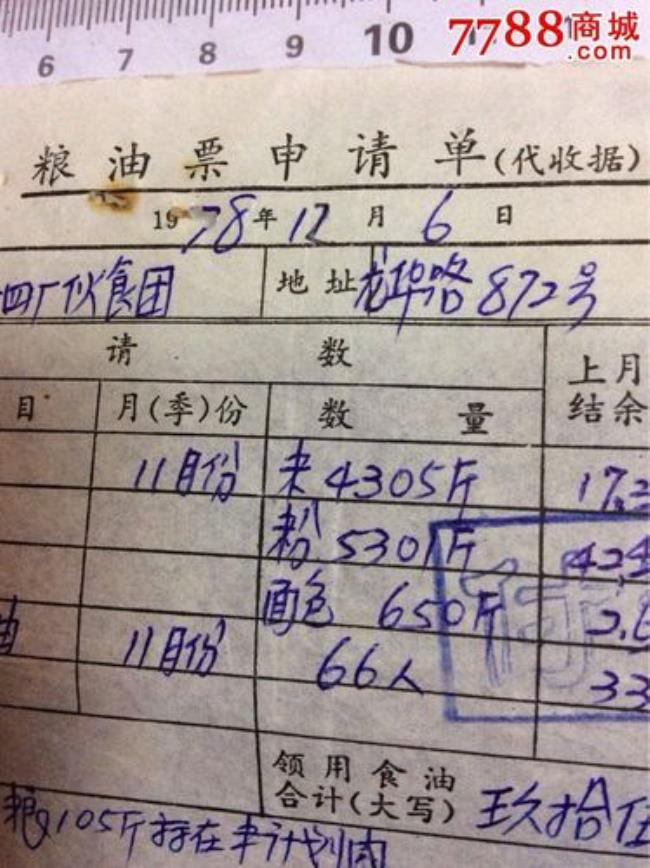 6 7 8 9 10 11
7788商城
.com
粮油票申请单(代收据)
1978年12月6日
四厂伙食团 地址 龙华路872号
请 数 上月
目 月(季)份 数量 结余
11月份 米 4305斤 17.
粉 5301斤 424
面包 650斤 2.6
油 11月份 66人 33
领用食油
合计(大写) 玖拾伍
粮105斤存在本计划内